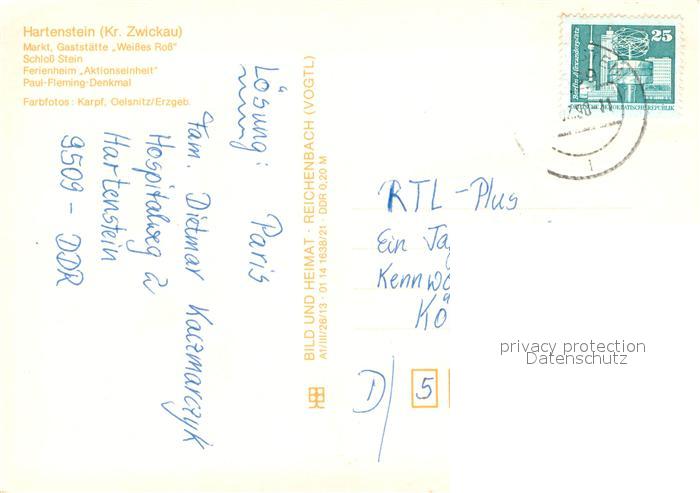 Hartenstein (Kr. Zwickau)
Markt, Gaststätte „Weißes Roß"
Schloß Stein
Ferienheim „Aktionseinheit"
Paul-Fleming-Denkmal
Farbfotos: Karpf, Oelsnitz/Erzgeb.
Lösung: Paris
Fam. Dietmar Kaczmarczyk
Hospitalweg 2
Hartenstein
9509 - DDR
BILD UND HEIMAT · REICHENBACH (VOGTL)
A1/III/26/13 · 01 14 1638/21 · DDR 0,20 M
Berlin, Alexanderplatz
25
DEUTSCHE DEMOKRATISCHE REPUBLIK
RTL-Plus
Ein
Kö
D/ 5
privacy protection
Datenschutz